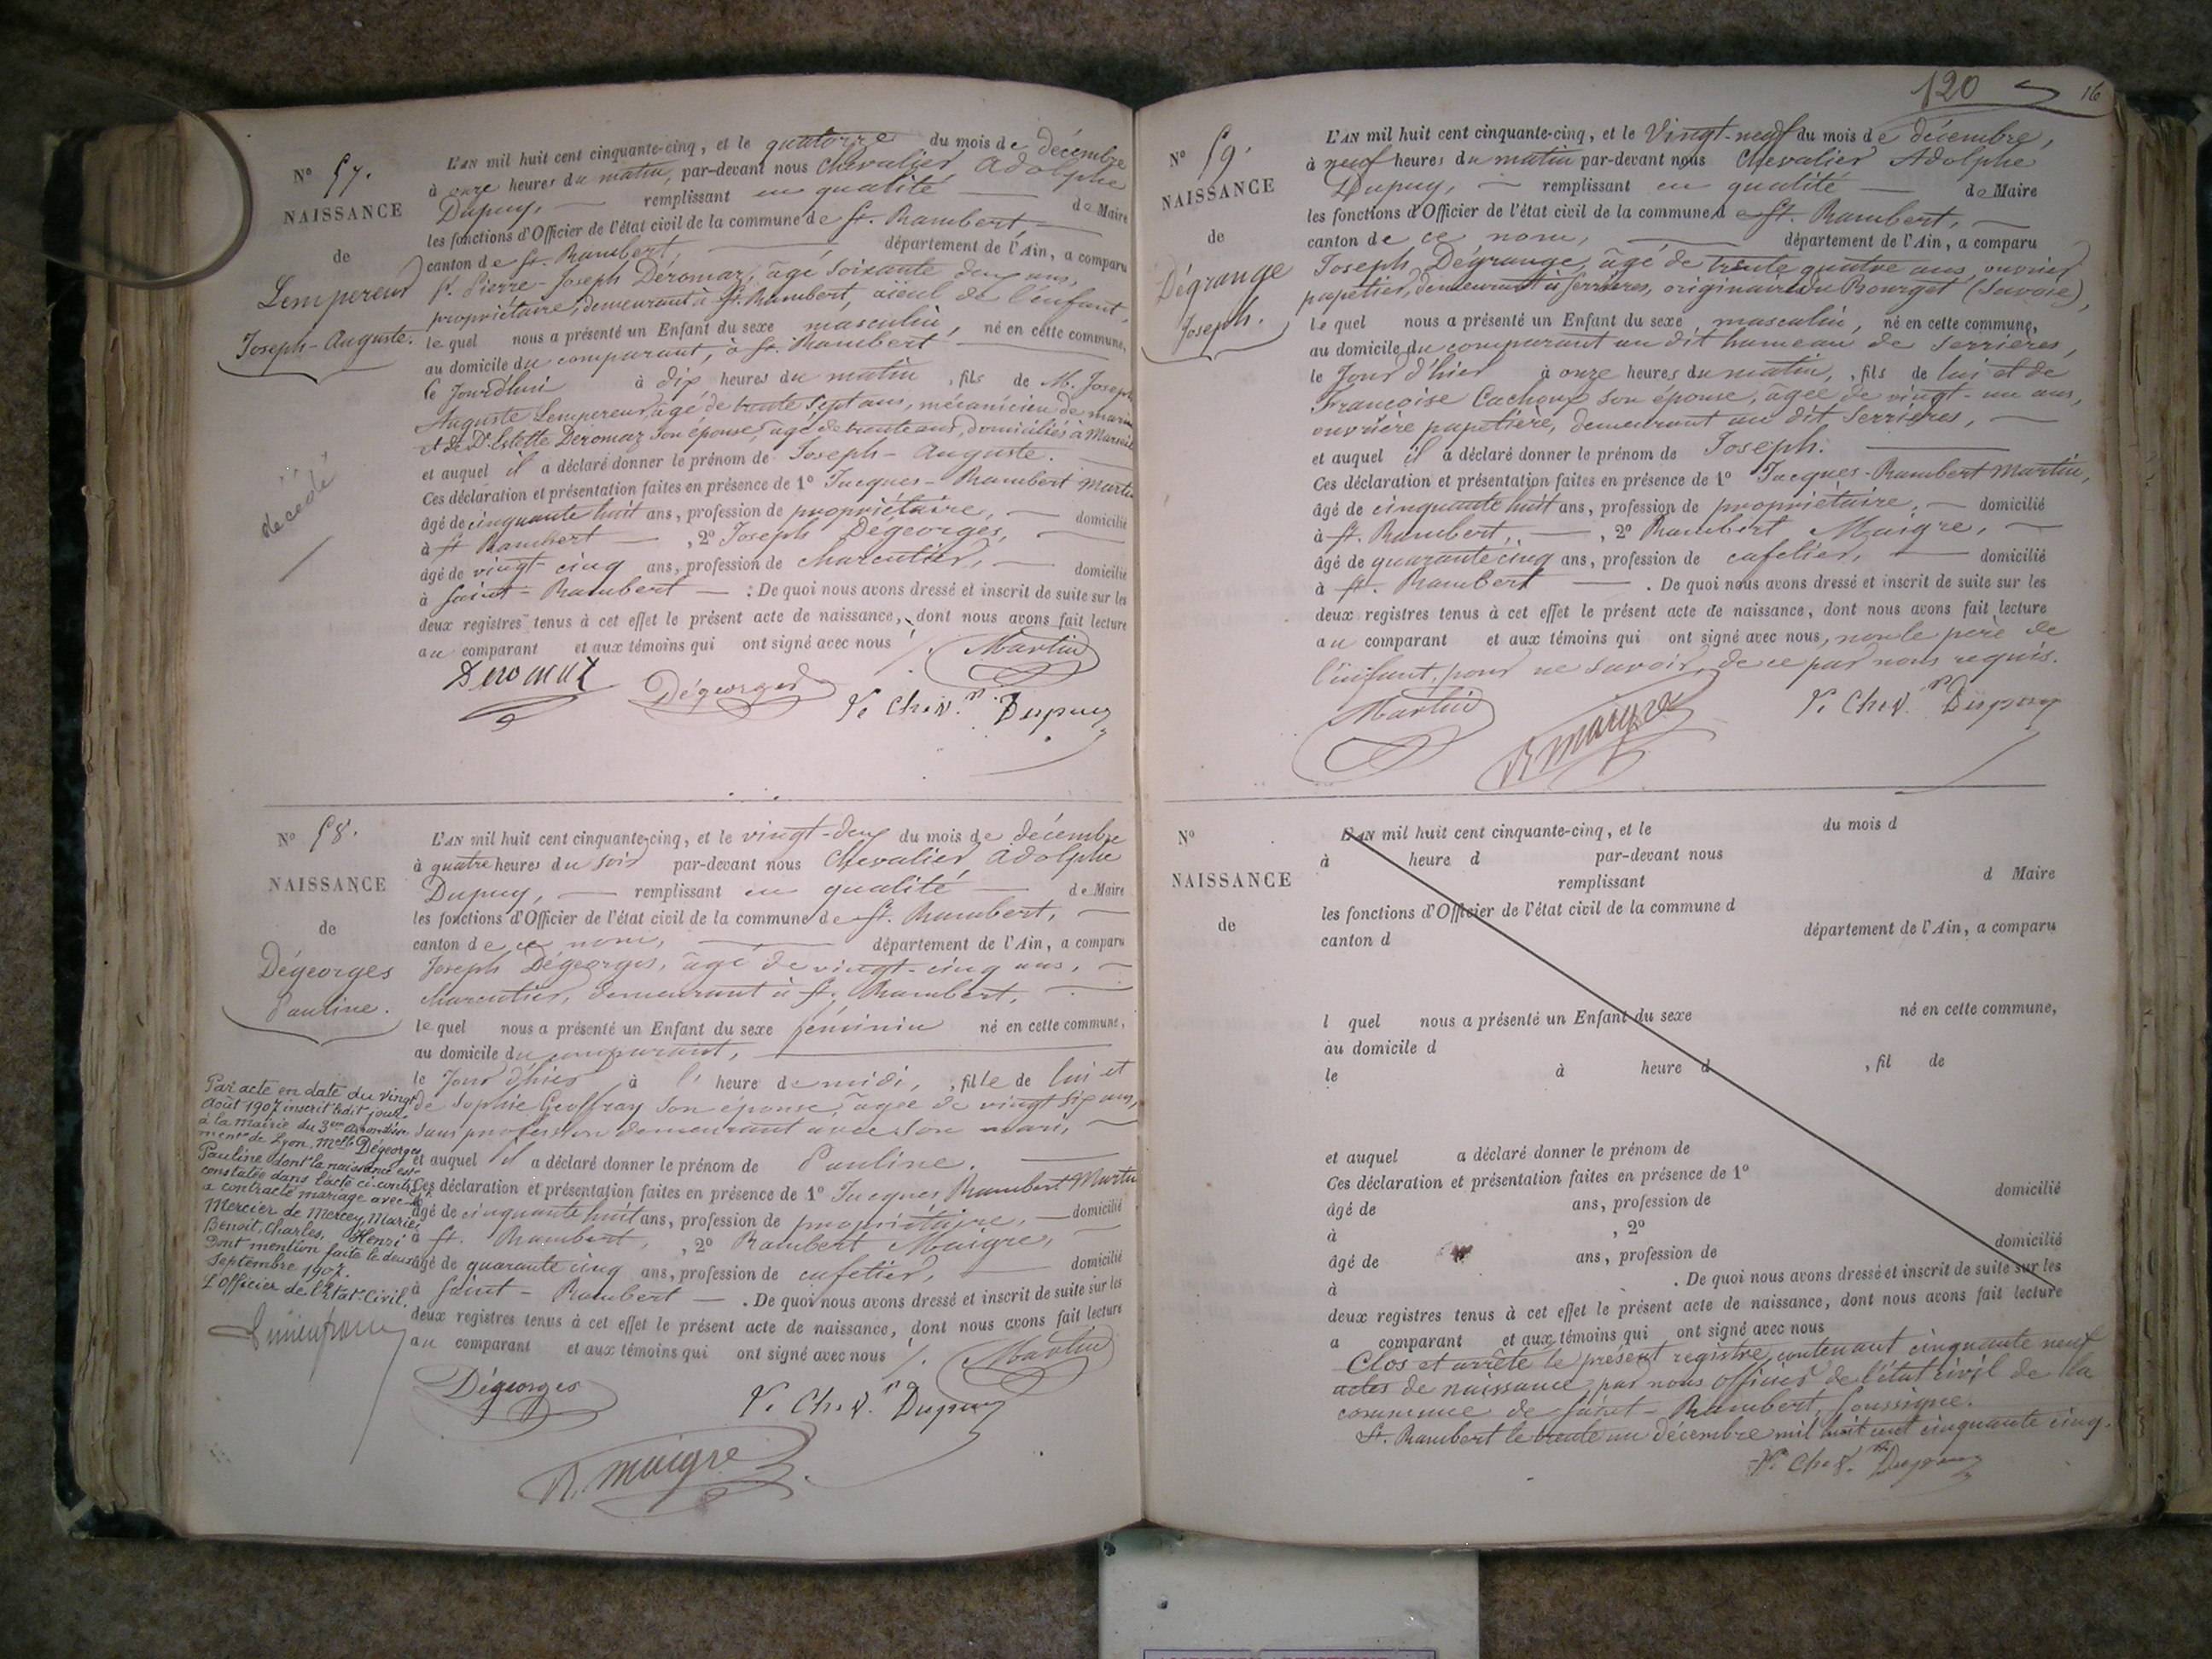 N° 57.
NAISSANCE
de
Lempereur
Joseph-Auguste.
décédé
L'AN mil huit cent cinquante-cinq, et le quatorze du mois de décembre
à onze heures du matin, par-devant nous Chevalier Adolphe
Dupuy, remplissant en qualité de Maire
les fonctions d'Officier de l'état civil de la commune de St. Rambert,
canton de St. Rambert, département de l'Ain, a comparu
Sr. Pierre-Joseph Déromaz, âgé soixante deux ans,
propriétaire, demeurant à St. Rambert, aïeul de l'enfant,
lequel nous a présenté un Enfant du sexe masculin, né en cette commune,
au domicile du comparant, à St. Rambert
le Jourd'hui à dix heures du matin, fils de M. Joseph
Auguste Lempereur âgé de trente sept ans, mécanicien de marine
et de De. Estelle Déromaz son épouse, âgé de trente ans, domiciliés à Marseille
et auquel il a déclaré donner le prénom de Joseph-Auguste.
Ces déclaration et présentation faites en présence de 1° Jacques-Rambert Martin
âgé de cinquante huit ans, profession de propriétaire, domicilié
à St Rambert, 2° Joseph Dégeorges,
âgé de vingt-cinq ans, profession de charcutier, domicilié
à Saint-Rambert : De quoi nous avons dressé et inscrit de suite sur les
deux registres tenus à cet effet le présent acte de naissance, dont nous avons fait lecture
au comparant et aux témoins qui ont signé avec nous /.
Martin
Deromaz
Dégeorges
Ve Chev. Dupuy
N° 58.
NAISSANCE
de
Dégeorges
Pauline.
L'AN mil huit cent cinquante-cinq, et le vingt-deux du mois de décembre
à quatre heures du soir par-devant nous Chevalier Adolphe
Dupuy, remplissant en qualité de Maire
les fonctions d'Officier de l'état civil de la commune de St. Rambert,
canton de ce nom, département de l'Ain, a comparu
Joseph Dégeorges, âgé de vingt-cinq ans,
charcutier, demeurant à St. Rambert,
lequel nous a présenté un Enfant du sexe féminin né en cette commune,
au domicile du comparant,
le Jour d'hier à l' heure de midi, fille de lui et
de Sophie Geoffray son épouse, âgée de vingt six ans,
sans profession demeurant avec son mari,
et auquel il a déclaré donner le prénom de Pauline.
Ces déclaration et présentation faites en présence de 1° Jacques Rambert Martin
âgé de cinquante huit ans, profession de propriétaire, domicilié
à St. Rambert, 2° Rambert Maigre,
âgé de quarante cinq ans, profession de cafetier, domicilié
à Saint-Rambert. De quoi nous avons dressé et inscrit de suite sur les
deux registres tenus à cet effet le présent acte de naissance, dont nous avons fait lecture
au comparant et aux témoins qui ont signé avec nous /.
Par acte en date du vingt
Août 1907 inscrit ledit jour
à la mairie du 3em Arrondisse
ment de Lyon, Melle Dégeorges
Pauline dont la naissance est
constatée dans l'acte ci-contre
a contracté mariage avec Mr
Mercier de Mercey, Marie,
Benoit, Charles, Henri
Dont mention faite le deux
Septembre 1907.
L'Officier de l'Etat-Civil.
Martin
Dégeorges
Ve Chev. Dupuy
R. Maigre
120
16
N° 59.
NAISSANCE
de
Dégrange
Joseph.
L'AN mil huit cent cinquante-cinq, et le Vingt-neuf du mois de décembre,
à neuf heures du matin par-devant nous Chevalier Adolphe
Dupuy, remplissant en qualité de Maire
les fonctions d'Officier de l'état civil de la commune de St. Rambert,
canton de ce nom, département de l'Ain, a comparu
Joseph Dégrange, âgé de trente quatre ans, ouvrier
papetier, demeurant à Serrières, originaire du Bourget (Savoie),
lequel nous a présenté un Enfant du sexe masculin, né en cette commune,
au domicile du comparant au dit hameau de Serrières,
le Jour d'hier à onze heures du matin, fils de lui et de
Françoise Cachoux son épouse, âgée de vingt-un ans,
ouvrière papetière, demeurant au dit Serrières,
et auquel il a déclaré donner le prénom de Joseph.
Ces déclaration et présentation faites en présence de 1° Jacques-Rambert Martin,
âgé de cinquante huit ans, profession de propriétaire, domicilié
à St. Rambert, 2° Rambert Maigre,
âgé de quarante cinq ans, profession de cafetier, domicilié
à St. Rambert. De quoi nous avons dressé et inscrit de suite sur les
deux registres tenus à cet effet le présent acte de naissance, dont nous avons fait lecture
au comparant et aux témoins qui ont signé avec nous, non le père de
l'enfant, pour ne savoir, de ce par nous requis.
Martin
R Maigre
Ve Chev. Dupuy
N°
NAISSANCE
de
L'AN mil huit cent cinquante-cinq, et le du mois d
à heure d par-devant nous
remplissant d Maire
les fonctions d'Officier de l'état civil de la commune d
canton d département de l'Ain, a comparu
l quel nous a présenté un Enfant du sexe né en cette commune,
au domicile d
le à heure d , fil de
et auquel a déclaré donner le prénom de
Ces déclaration et présentation faites en présence de 1°
âgé de ans, profession de domicilié
à , 2°
âgé de ans, profession de domicilié
à . De quoi nous avons dressé et inscrit de suite sur les
deux registres tenus à cet effet le présent acte de naissance, dont nous avons fait lecture
a comparant et aux témoins qui ont signé avec nous
Clos et arrêté le présent registre contenant cinquante neuf
actes de naissance, par nous officier de l'état civil de la
commune de Saint-Rambert, soussigné.
St. Rambert le trente un décembre mil huit cent cinquante cinq.
Ve Chev. Dupuy